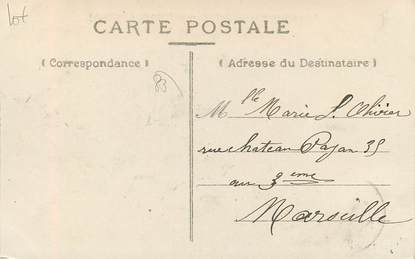 lot
CARTE POSTALE
( Correspondance )
( Adresse du Destinataire )
83
Mlle Marie L. Olivier
rue chateau Payan 35
au 3eme
Marseille